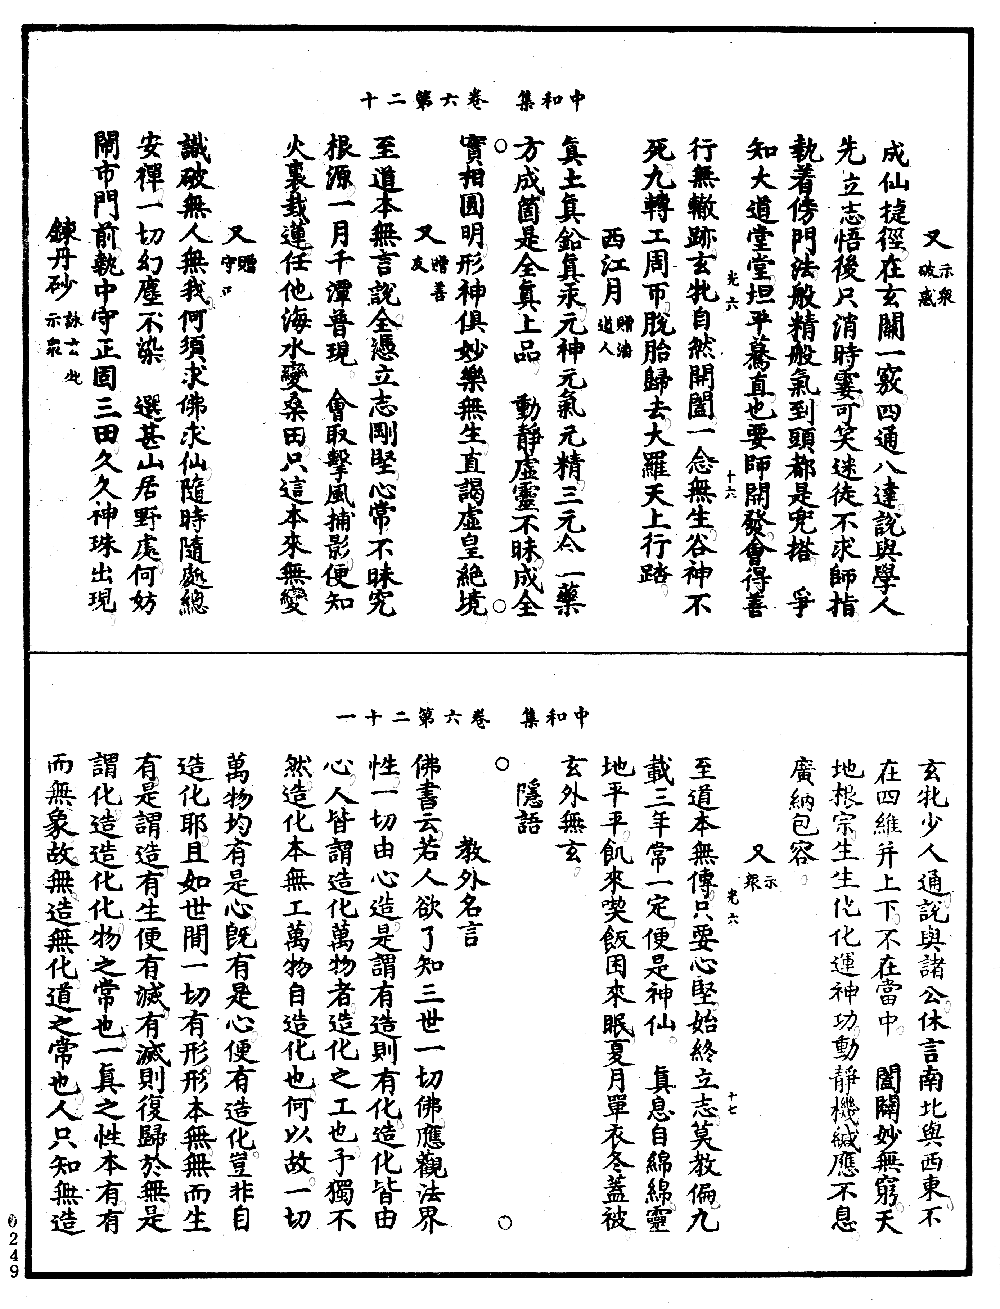 中和集　卷六第二十
又 示衆破惑
成仙捷徑在玄關一竅四通八達說與學人
先立志悟後只消時霎可笑迷徒不求師指
執着傍門法般精般氣到頭都是兜搭　爭
知大道堂堂坦平驀直也要師開發會得善
光六　十六
行無轍跡玄牝自然開闔一念無生谷神不
死九轉工周帀脫胎歸去大羅天上行踏
西江月 贈潘道人
真土真鉛真汞元神元氣元精三元合一藥
方成箇是全真上品　動靜虛靈不昧成全
實相圓明形神俱妙樂無生直謁虛皇絕境
又 贈善友
至道本無言說全憑立志剛堅心常不昧究
根源一月千潭普現　會取擊風捕影便知
火裏栽蓮任他海水變桑田只這本來無變
又 贈守一
識破無人無我何須求佛求仙隨時隨處總
安禪一切幻塵不染　選甚山居野處何妨
鬧市門前執中守正固三田久久神珠出現
鍊丹砂 詠玄牝示衆
中和集　卷六第二十一
玄牝少人通說與諸公休言南北與西東不
在四維幷上下不在當中　闔闢妙無窮天
地根宗生生化化運神功動靜機緘應不息
廣納包容
又 示衆
光六　十七
至道本無傳只要心堅始終立志莫教偏九
載三年常一定便是神仙　真息自綿綿靈
地平平飢來喫飯困來眠夏月單衣冬蓋被
玄外無玄
隱語
教外名言
佛書云若人欲了知三世一切佛應觀法界
性一切由心造是謂有造則有化造化皆由
心人皆謂造化萬物者造化之工也予獨不
然造化本無工萬物自造化也何以故一切
萬物均有是心旣有是心便有造化豈非自
造化耶且如世間一切有形形本無無而生
有是謂造有生便有滅有滅則復歸於無是
謂化造造化化物之常也一真之性本有有
而無象故無造無化道之常也人只知無造
0249